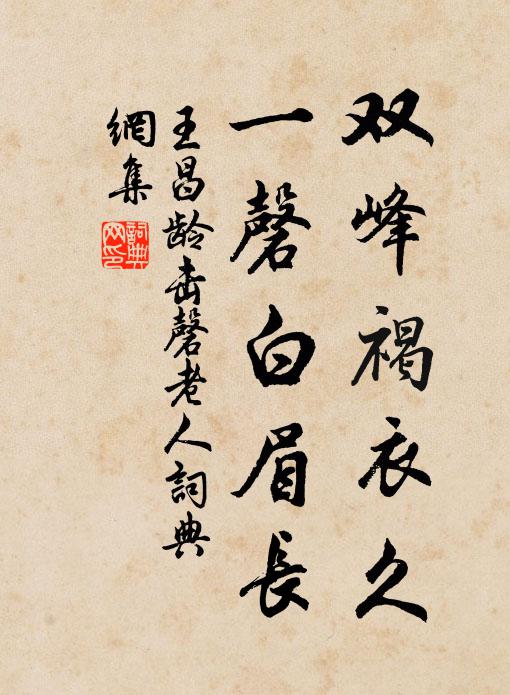 双峰褐衣久
一磬白眉長
王昌龄击磬老人詞典
網集
詞典
网印